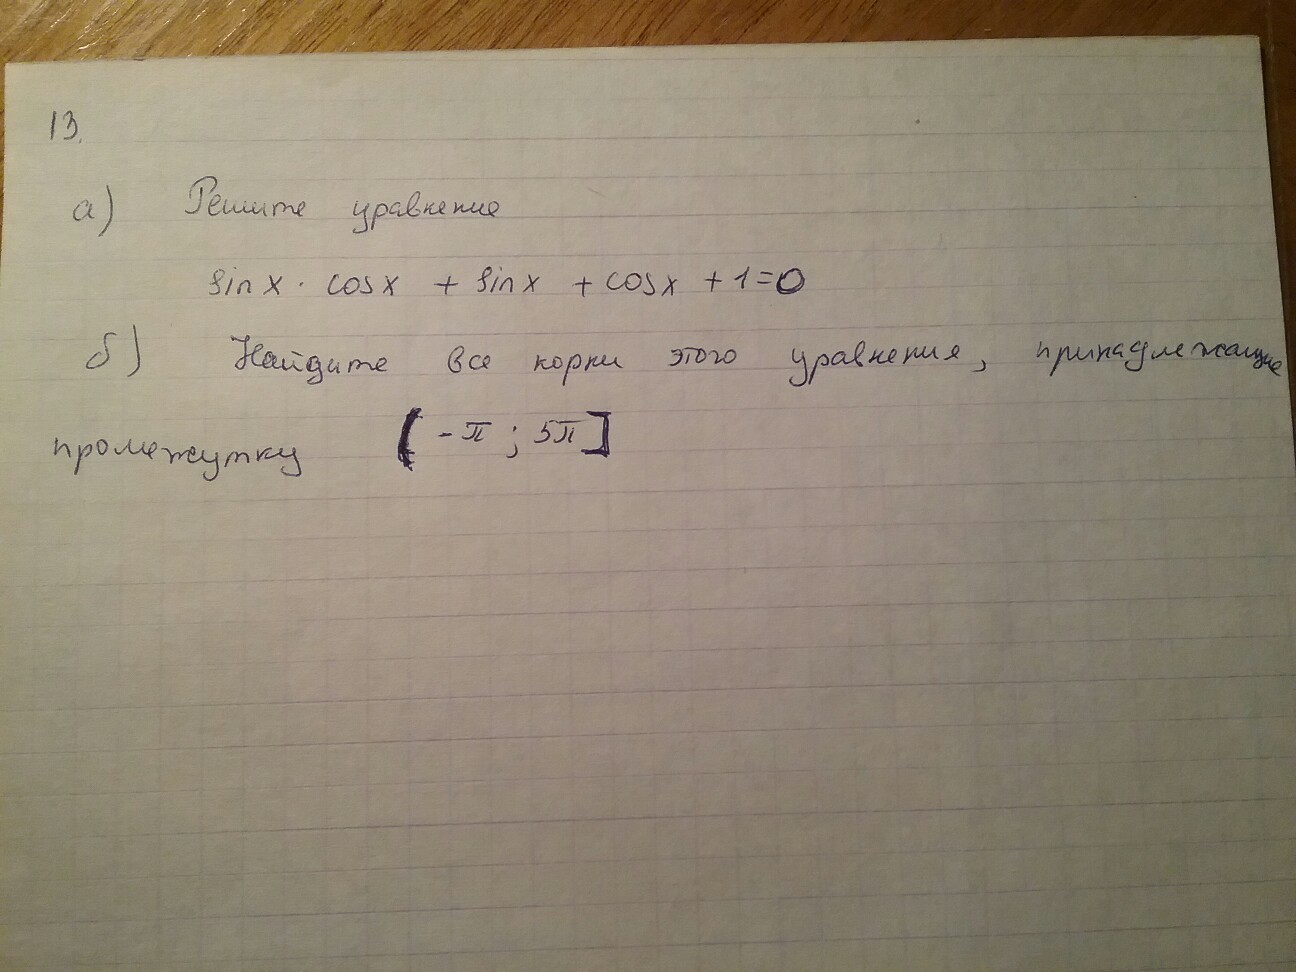 13.
а) Решите уравнение
sin x · cos x + sin x + cos x + 1 = 0
б) Найдите все корни этого уравнения, принадлежащие
промежутку [-π ; 5π]